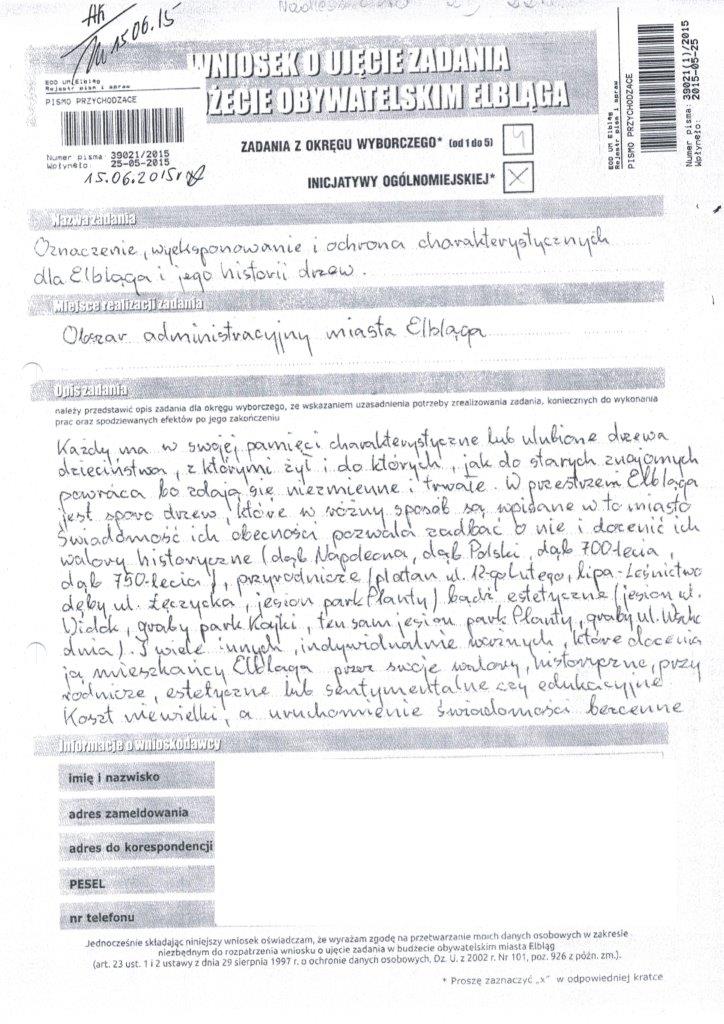 AK
15.06.15
WNIOSEK O UJĘCIE ZADANIA
ŻECIE OBYWATELSKIM ELBLĄGA
EOD UM Elbląg
Rejestr pism i spraw
PISMO PRZYCHODZĄCE
Numer pisma: 39021/2015
Wpłynęło: 25-05-2015
15.06.2015r
EOD UM Elbląg
Rejestr pism i spraw
PISMO PRZYCHODZĄCE
Numer pisma: 39021(1)/2015
Wpłynęło: 2015-05-25
ZADANIA Z OKRĘGU WYBORCZEGO* (od 1 do 5) 4
INICJATYWY OGÓLNOMIEJSKIEJ* X
Nazwa zadania
Oznaczenie, wyeksponowanie i ochrona charakterystycznych
dla Elbląga i jego historii drzew.
Miejsce realizacji zadania
Obszar administracyjny miasta Elbląga
Opis zadania
należy przedstawić opis zadania dla okręgu wyborczego, ze wskazaniem uzasadnienia potrzeby zrealizowania zadania, koniecznych do wykonania
prac oraz spodziewanych efektów po jego zakończeniu
Każdy ma w swojej pamięci charakterystyczne lub ulubione drzewa
dzieciństwa, z którymi żył i do których, jak do starych znajomych
powraca bo zdają się niezmienne i trwałe. W przestrzeni Elbląga
jest sporo drzew, które w różny sposób są wpisane w to miasto
Świadomość ich obecności pozwala zadbać o nie i docenić ich
walory historyczne (dąb Napoleona, dąb Polski, dąb 700-lecia,
dąb 750-lecia), przyrodnicze (platan ul. 12-go Lutego, lipa-Leśnictwo
dęby ul. Łęczycka, jesion park Planty) bądź estetyczne (jesion ul.
Widok, graby park Kajki, ten sam jesion park Planty, graby ul. Wscho
dnia). I wiele innych, indywidualnie ważnych, które docenia
ją mieszkańcy Elbląga przez swoje walory, historyczne, przy
rodnicze, estetyczne lub sentymentalne czy edukacyjne
Koszt niewielki, a uruchomienie świadomości bezcenne
Informacje o wnioskodawcy
imię i nazwisko
adres zameldowania
adres do korespondencji
PESEL
nr telefonu
Jednocześnie składając niniejszy wniosek oświadczam, że wyrażam zgodę na przetwarzanie moich danych osobowych w zakresie
niezbędnym do rozpatrzenia wniosku o ujęcie zadania w budżecie obywatelskim miasta Elbląg
(art. 23 ust. 1 i 2 ustawy z dnia 29 sierpnia 1997 r. o ochronie danych osobowych, Dz. U. z 2002 r. Nr 101, poz. 926 z późn. zm.).
* Proszę zaznaczyć „x" w odpowiedniej kratce